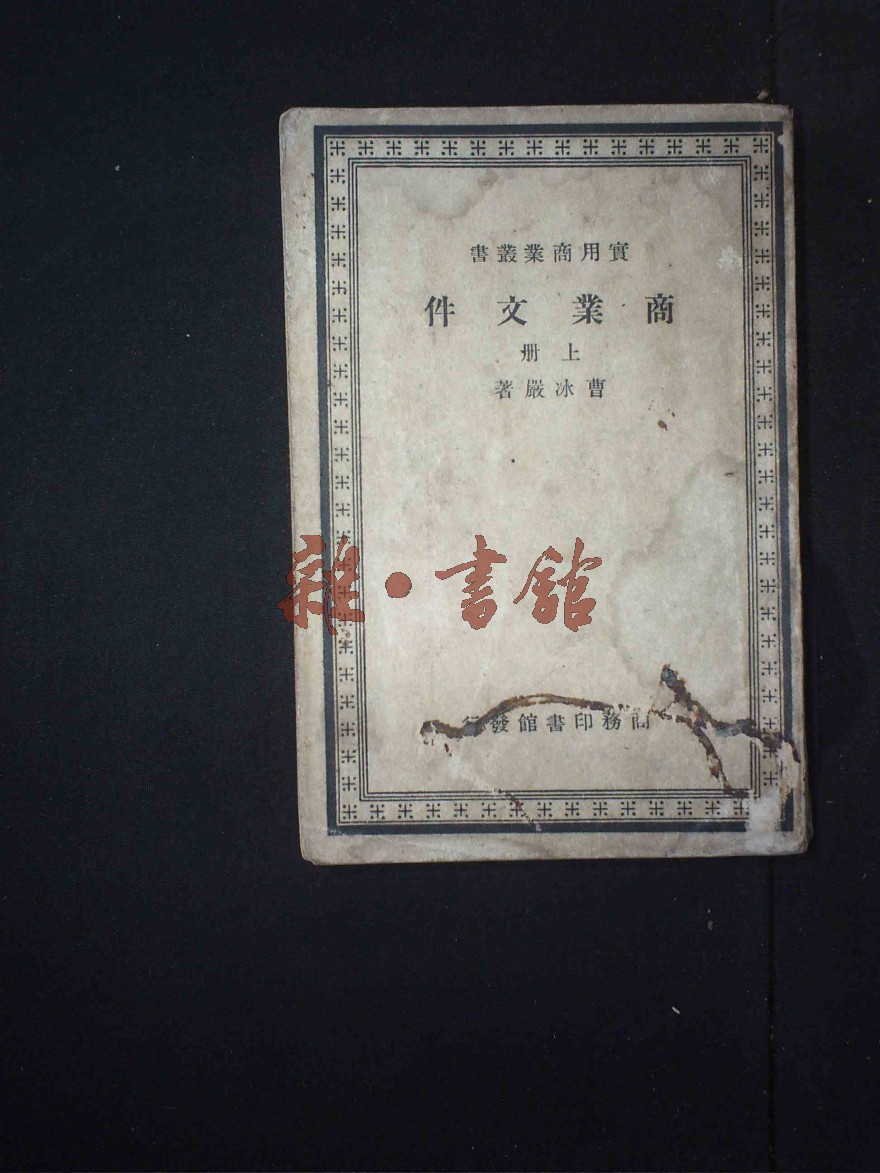 實用商業叢書
商業文件
上册
曹冰嚴著
雜·書館
商務印書館發行